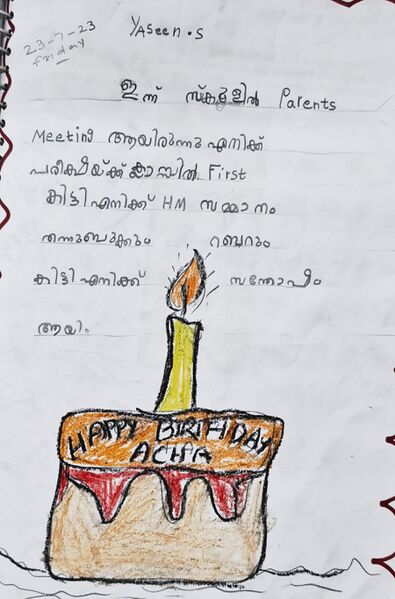 23-7-23
friday
Yaseen.S
ഇന്ന് സ്കൂളിൽ Parents
Meeting ആയിരുന്നു എനിക്ക്
പരീക്ഷയ്ക്ക് ക്ലാസ്സിൽ First
കിട്ടി എനിക്ക് HM സമ്മാനം
തന്നു ബുക്കും റബറും
കിട്ടി എനിക്ക് സന്തോഷം
ആയി.
HAPPY BIRTHDAY
ACHA